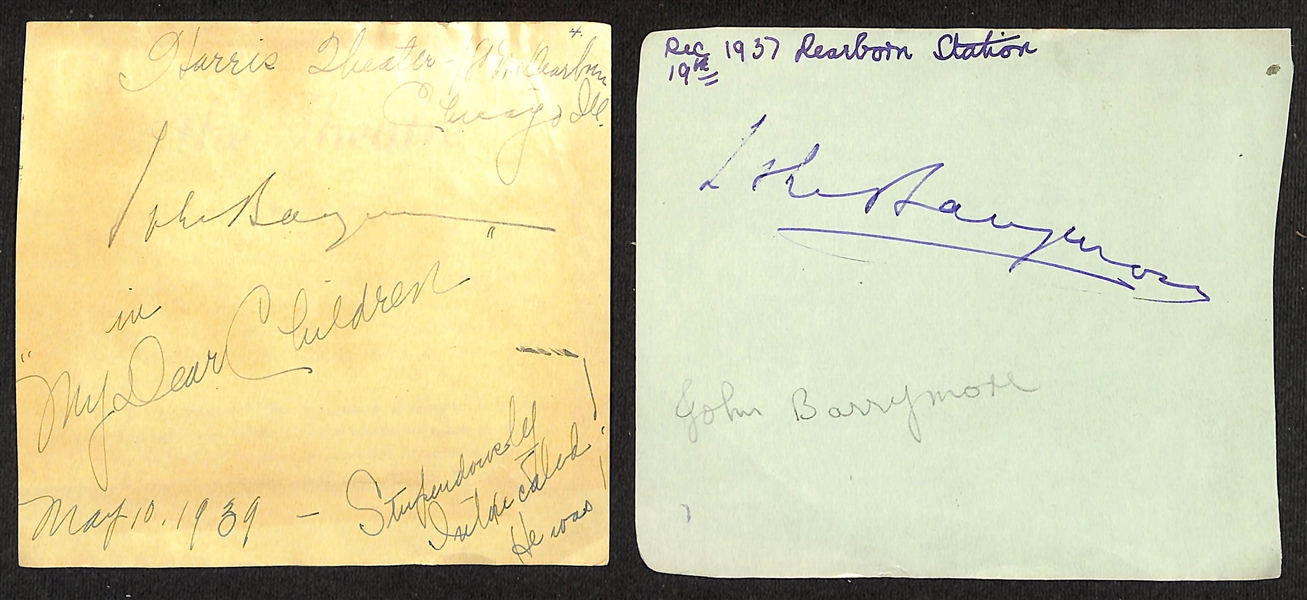 4.
Harris Theater - Dearborn
Chicago Ill.
John Barrymore
in
"My Dear Children"
May 10. 1939 — Stupendously
Intoxicated!
He was!
Dec 1937 Dearborn Station
19th
John Barrymore
John Barrymore